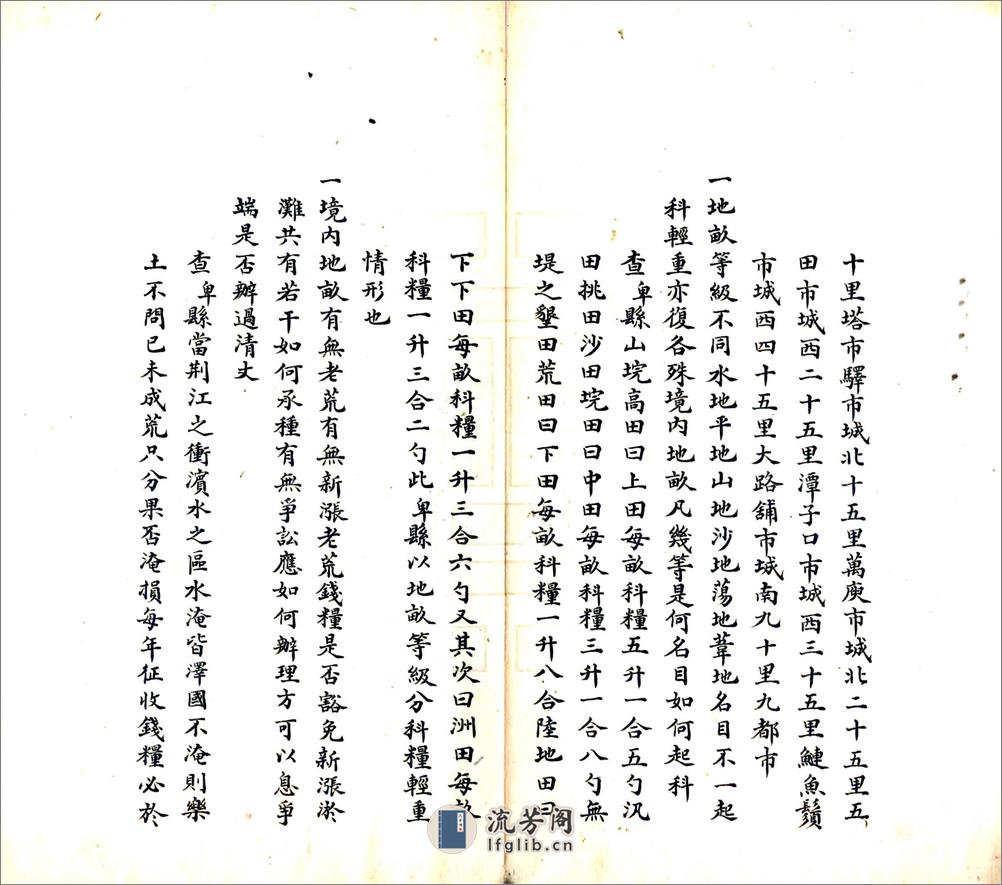 十里塔市驛市城北十五里萬庾市城北二十五里五
田市城西二十五里潭子口市城西三十五里鰱魚鬚
市城西四十五里大路舖市城南九十里九都市
一地畝等級不同水地平地山地沙地蕩地葦地名目不一起
科輕重亦復各殊境內地畝凡幾等是何名目如何起科
查卑縣山垸高田曰上田每畝科糧五升一合五勺汎
田挑田沙田垸田曰中田每畝科糧三升一合八勺無
堤之墾田荒田曰下田每畝科糧一升八合陸地田曰
下下田每畝科糧一升三合六勺又其次曰洲田每畝
科糧一升三合二勺此卑縣以地畝等級分科糧輕重
情形也
一境內地畝有無老荒有無新漲老荒錢糧是否豁免新漲淤
灘共有若干如何承種有無爭訟應如何辦理方可以息爭
端是否辦過清丈
查卑縣當荆江之衝濱水之區水淹皆澤國不淹則樂
土不問已未成荒只分果否淹損每年征收錢糧必於
流芳阁
lfglib.cn